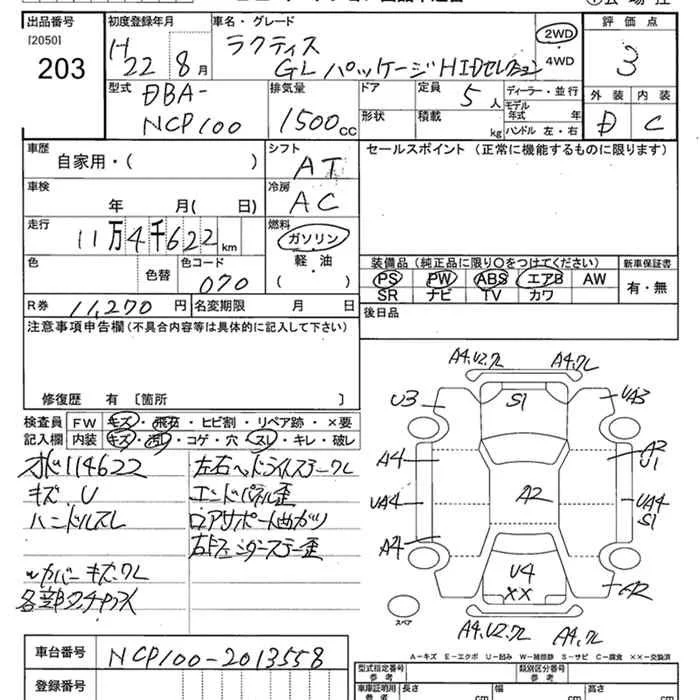 出品番号
[2050]
203
初度登録年月
H22 8月
車名・グレード
ラクティス
GL パッケージHIDセレクション
2WD
4WD
評価点
3
外装 内装
D C
型式
DBA-
NCP100
排気量
1500cc
ドア
形状
定員 5人
積載 kg
ディーラー・並行
モデル年式 年
ハンドル 左・右
車歴
自家用・( )
シフト
AT
セールスポイント (正常に機能するものに限ります)
車検
年 月( 日)
冷房
AC
走行
11万4千622km
燃料
ガソリン
軽・油
( ・ )
色
色替
色コード
070
装備品 (純正品に限り○をつけてください)
PS PW ABS エアB AW
SR ナビ TV カワ
新車保証書
有・無
R券 11,270円
名変期限 月 日
後日品
注意事項申告欄 (不具合内容等は具体的に記入して下さい)
修復歴 有 〔箇所 〕
検査員記入欄
FW キズ・飛石・ヒビ割・リペア跡・×要
内装 キズ・汚れ・コゲ・穴・スレ・キレ・破レ
オド114622
キズ、U
ハンドルスレ
ツルカバーキズ,ワレ
左右ヘッドライトステーワレ
エンドパネル歪
ロアサポート曲がり
右Fフェンダーステー歪
A4,U2,ワレ
A4,ワレ
U3
S1
UA3
A4
A2
U1
UA4
A2
UA4
S1
A4
U4
XX
A2
スペア
A4,U2,ワレ
A4,ワレ
A-キズ E-エクボ U-凹み W-補修跡 S-サビ C-腐食 ××-交換済
車台番号
NCP100-2013558
登録番号
型式指定番号
参考
類別区分番号
参考
車庫証明用
参考
長さ cm
幅 cm
高さ cm